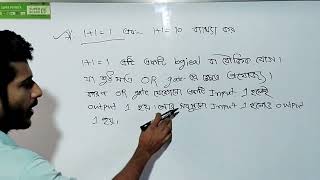 1+1=1 এবং 1+1=10 ব্যাখ্যা কর
1+1=1 এটি একটি logical বা যৌক্তিক যোগ।
যা শুধুমাত্র OR gate এর ক্ষেত্রে প্রযোজ্য।
কারণ OR gate যেকোনো একটি Input 1 হলেই
output 1 হয়। আবার সবগুলো Input 1 হলেও output
1 হয়।